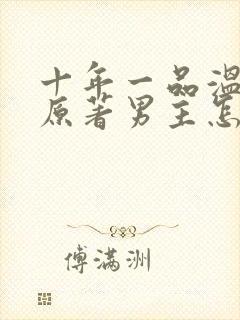 十年一品温
原著男主怎
傅满洲